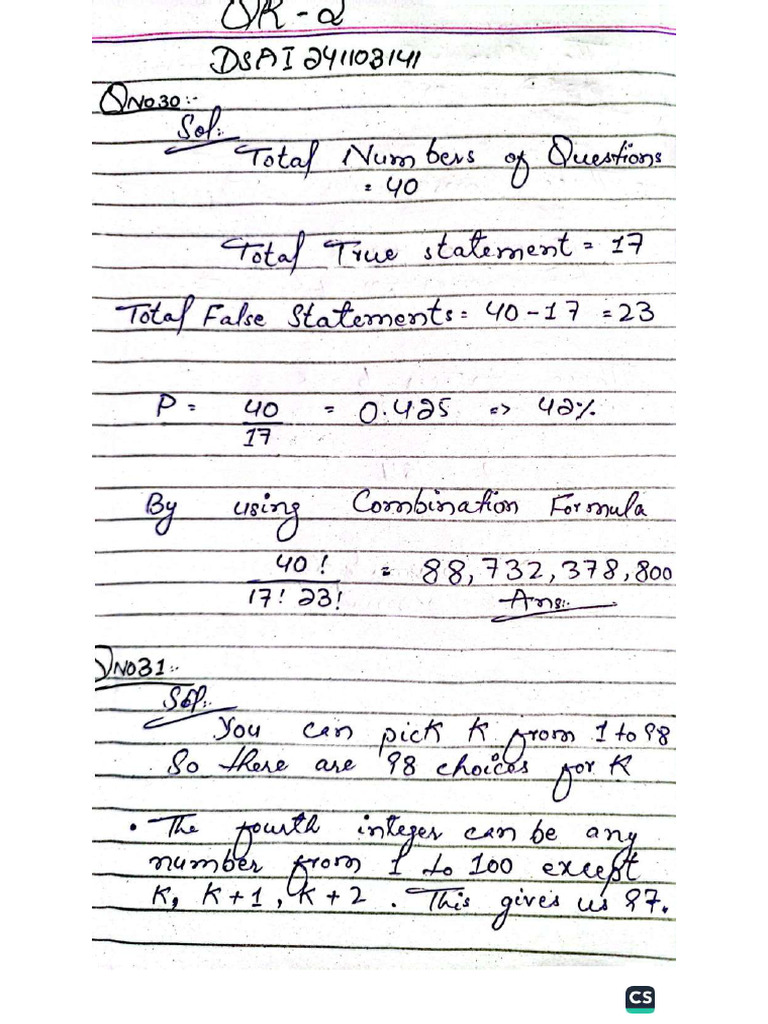 QR-2
DSAI 241103141
QNo30:-
Sol:
Total Numbers of Questions
= 40
Total True statement = 17
Total False Statements = 40-17 = 23
P = 40/17 = 0.425 => 42%
By using Combination Formula
40! / 17! 23! = 88,732,378,800
Ans:
QNo31:-
Sol:
You can pick K from 1 to 98
So there are 98 choices for K
• The fourth integer can be any
number from 1 to 100 except
K, K+1, K+2. This gives us 97.
CS